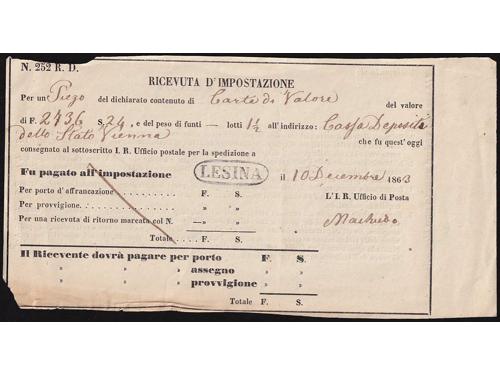 N. 252 R. D.
RICEVUTA D'IMPOSTAZIONE
Per un' Piego del dichiarato contenuto di Carte di Valore del valore
di F. 2436 S. 24, e del peso di funti — lotti 1½ all'indirizzo: Cassa Depositi
dello Stato Vienna che fu quest'oggi
consegnato al sottoscritto I. R. Ufficio postale per la spedizione a
Fu pagato all'impostazione LESINA il 10 Decembre 1863
Per porto d'affrancazione F. S. L'I. R. Ufficio di Posta
Per provvigione. " "
Per una ricevuta di ritorno marcata col N. — " "
Totale F. S.
Il Ricevente dovrà pagare per porto F. S.
" " " assegno " "
" " " provvigione " "
Totale F. S.